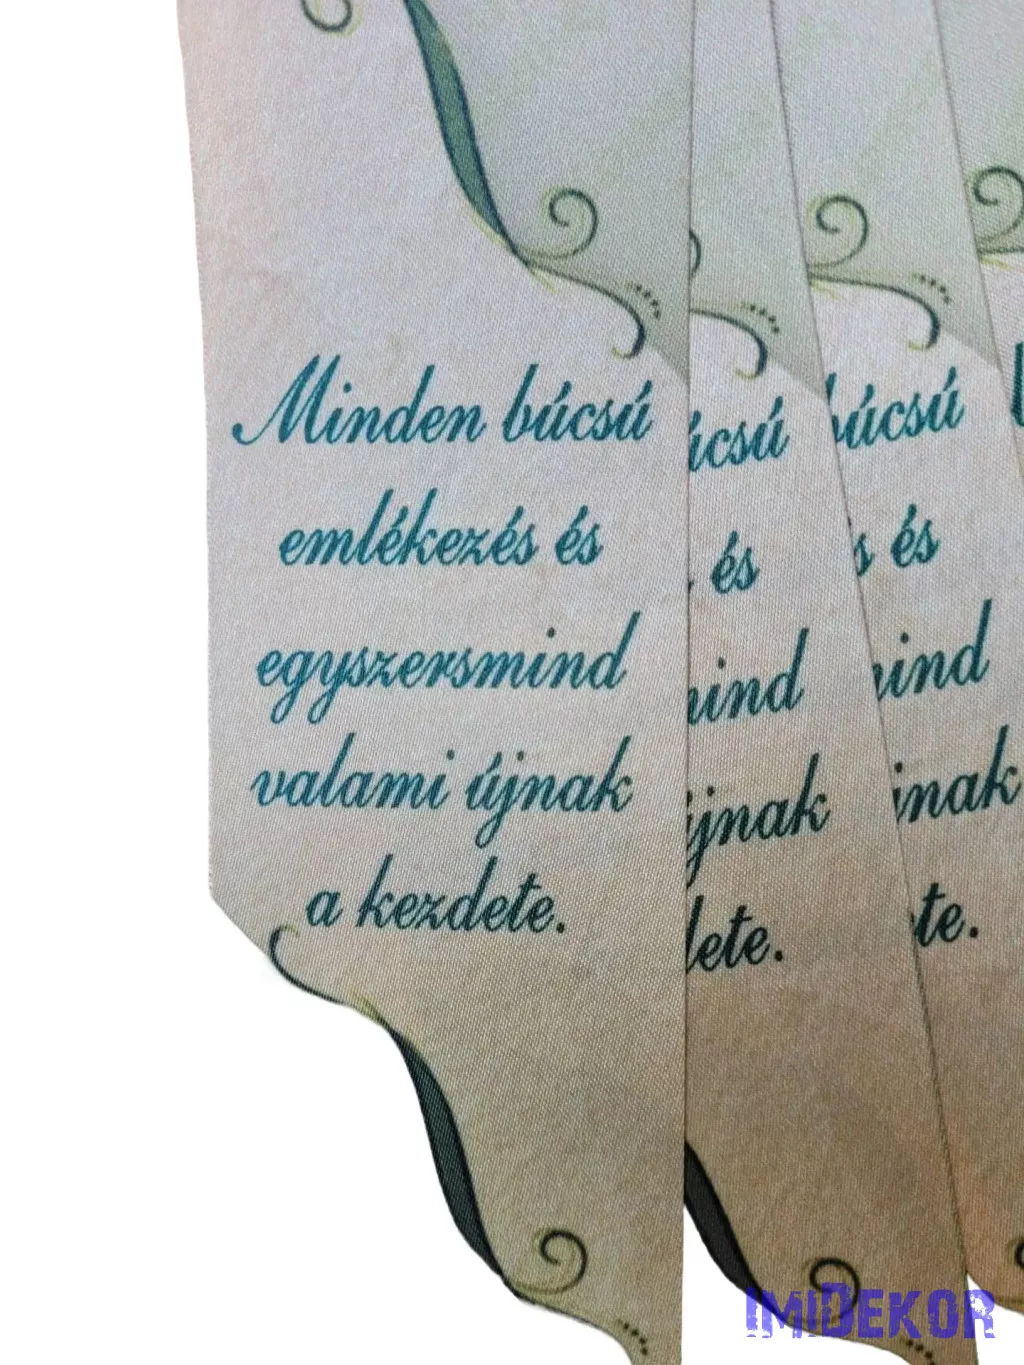 Minden búcsú
emlékezés és
egyszersmind
valami újnak
a kezdete.
úcsú
és
mind
újnak
dete.
búcsú
s és
mind
jnak
te.
IMIDEKOR